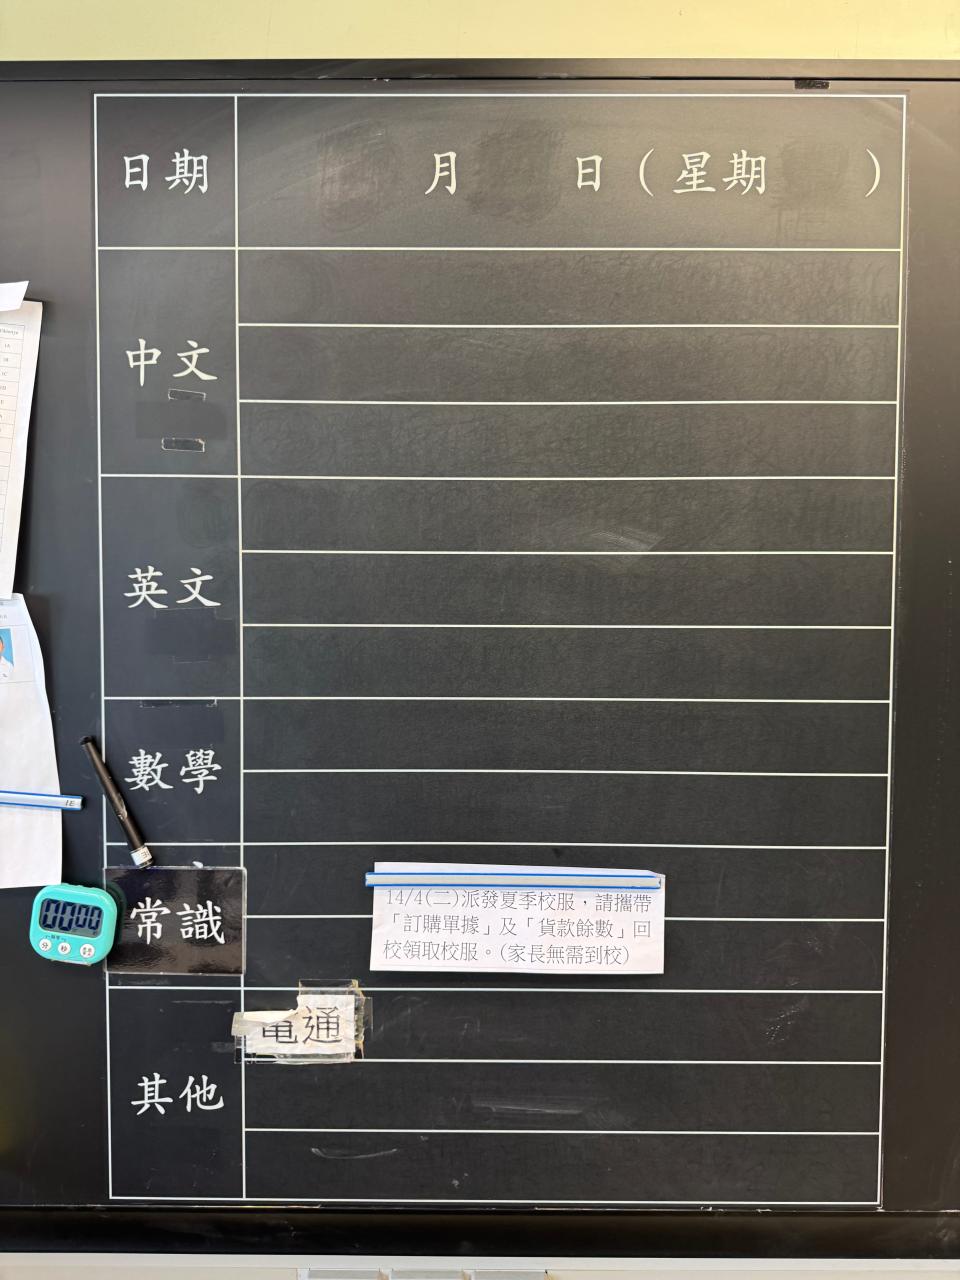 日期 月 日(星期 )
中文
英文
數學
常識
14/4(二)派發夏季校服,請攜帶
「訂購單據」及「貨款餘數」回
校領取校服。(家長無需到校)
電通
其他
00:00
分 秒
1E